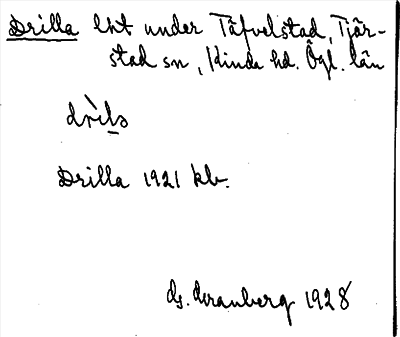 Drilla lht under Täfvelstad, Tjär-
stad sn, Kinda hd. Ögl. län
drìla
Drilla 1921 kb.
Ds. Granberg 1928